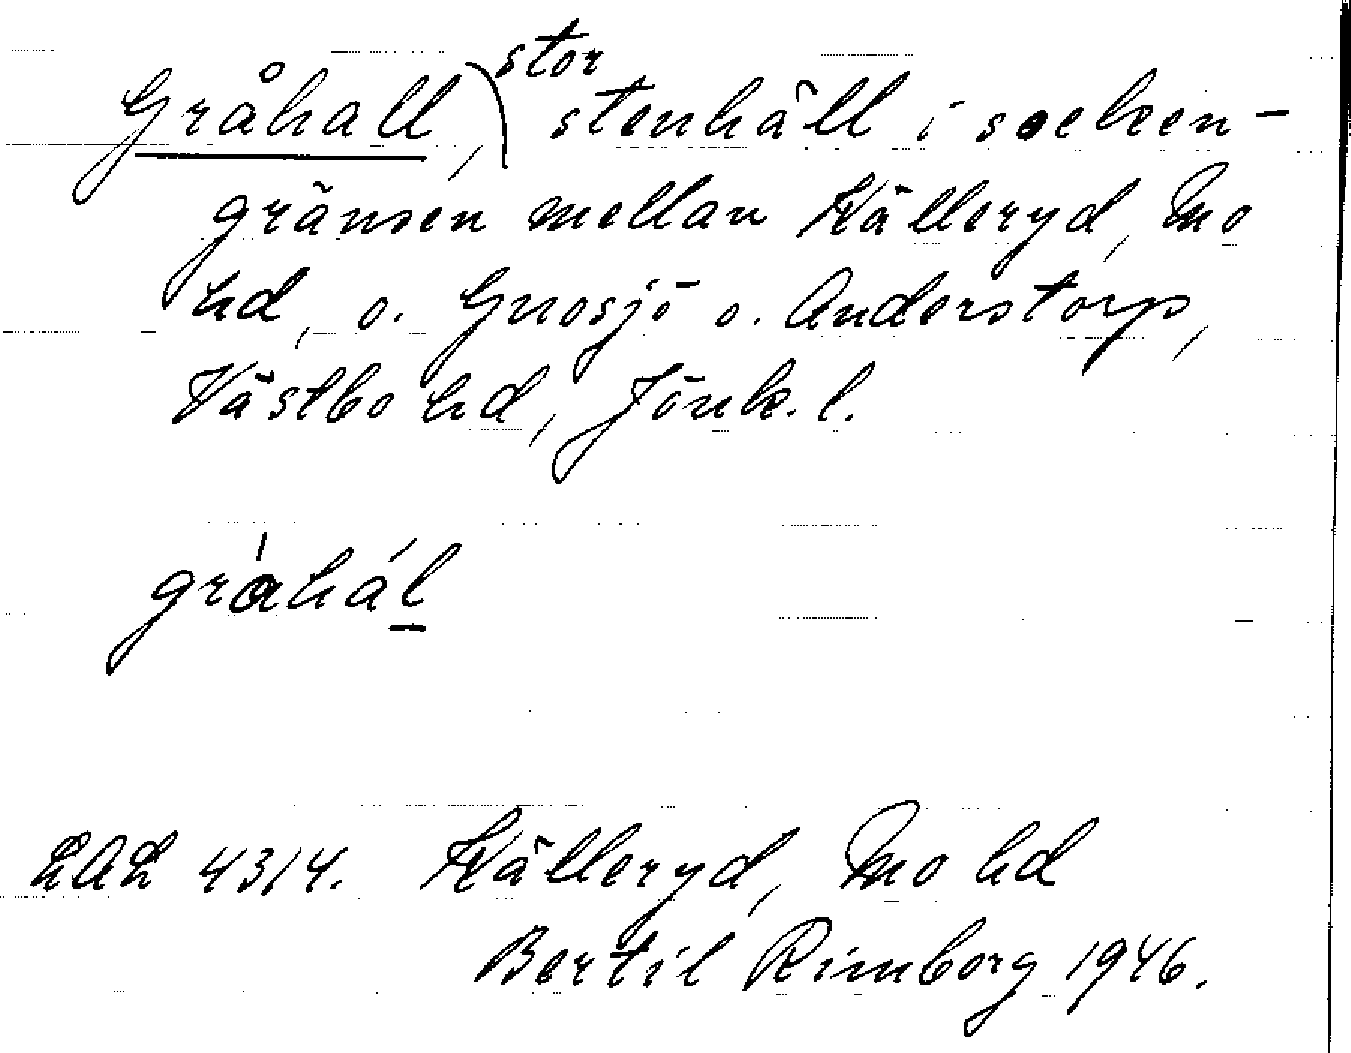 Gråhall, stor stenhäll i socken-
gränsen mellan Källeryd, Mo
hd, o. Gnosjö o. Anderstorp,
Västbo hd, Jönk. l.
gråhál
LAL 4314. Källeryd, Mo hd
Bertil Rimborg 1946.